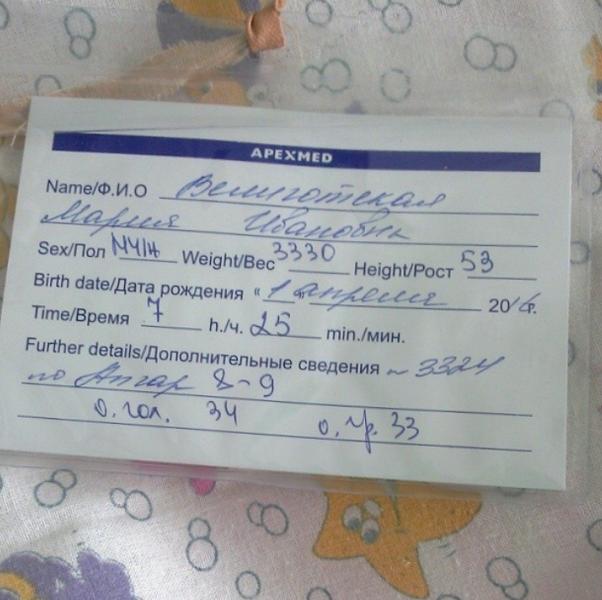 APEXMED
Name/Ф.И.О Велиготская
Мария Ивановна
Sex/Пол муж Weight/Вес 3330 Height/Рост 53
Birth date/Дата рождения "1" апреля 2016г.
Time/Время 7 h./ч. 25 min./мин.
Further details/Дополнительные сведения № 3324
по Апгар 8-9
о. гол. 34 о. гр. 33